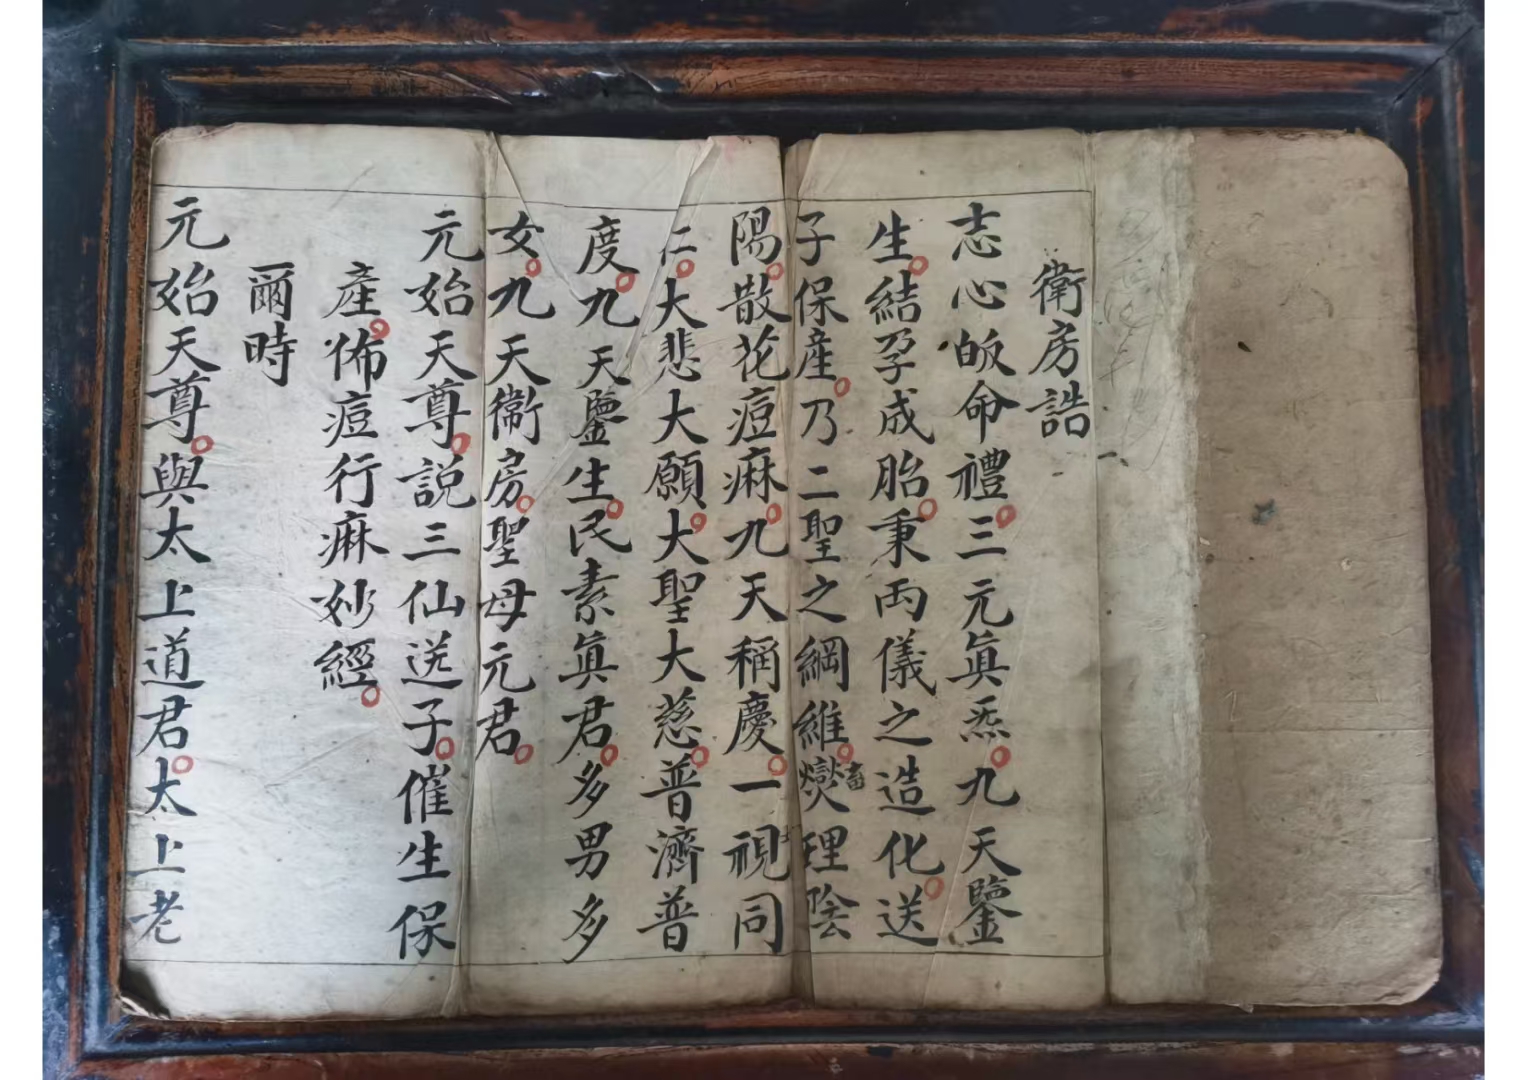 衛房誥
志心皈命禮。三元眞炁。九天鑒
生。結孕成胎。秉两儀之造化。送
子保產。乃二聖之綱維。燮理陰
陽。散花痘麻。九天稱慶。一視同
仁。大悲大願。大聖大慈。普濟普
度。九天鑒生。民素眞君。多男多
女。九天衞房。聖母元君。
元始天尊。説三仙送子。催生保
產。佈痘行麻妙經。
爾時
元始天尊。與太上道君。太上老